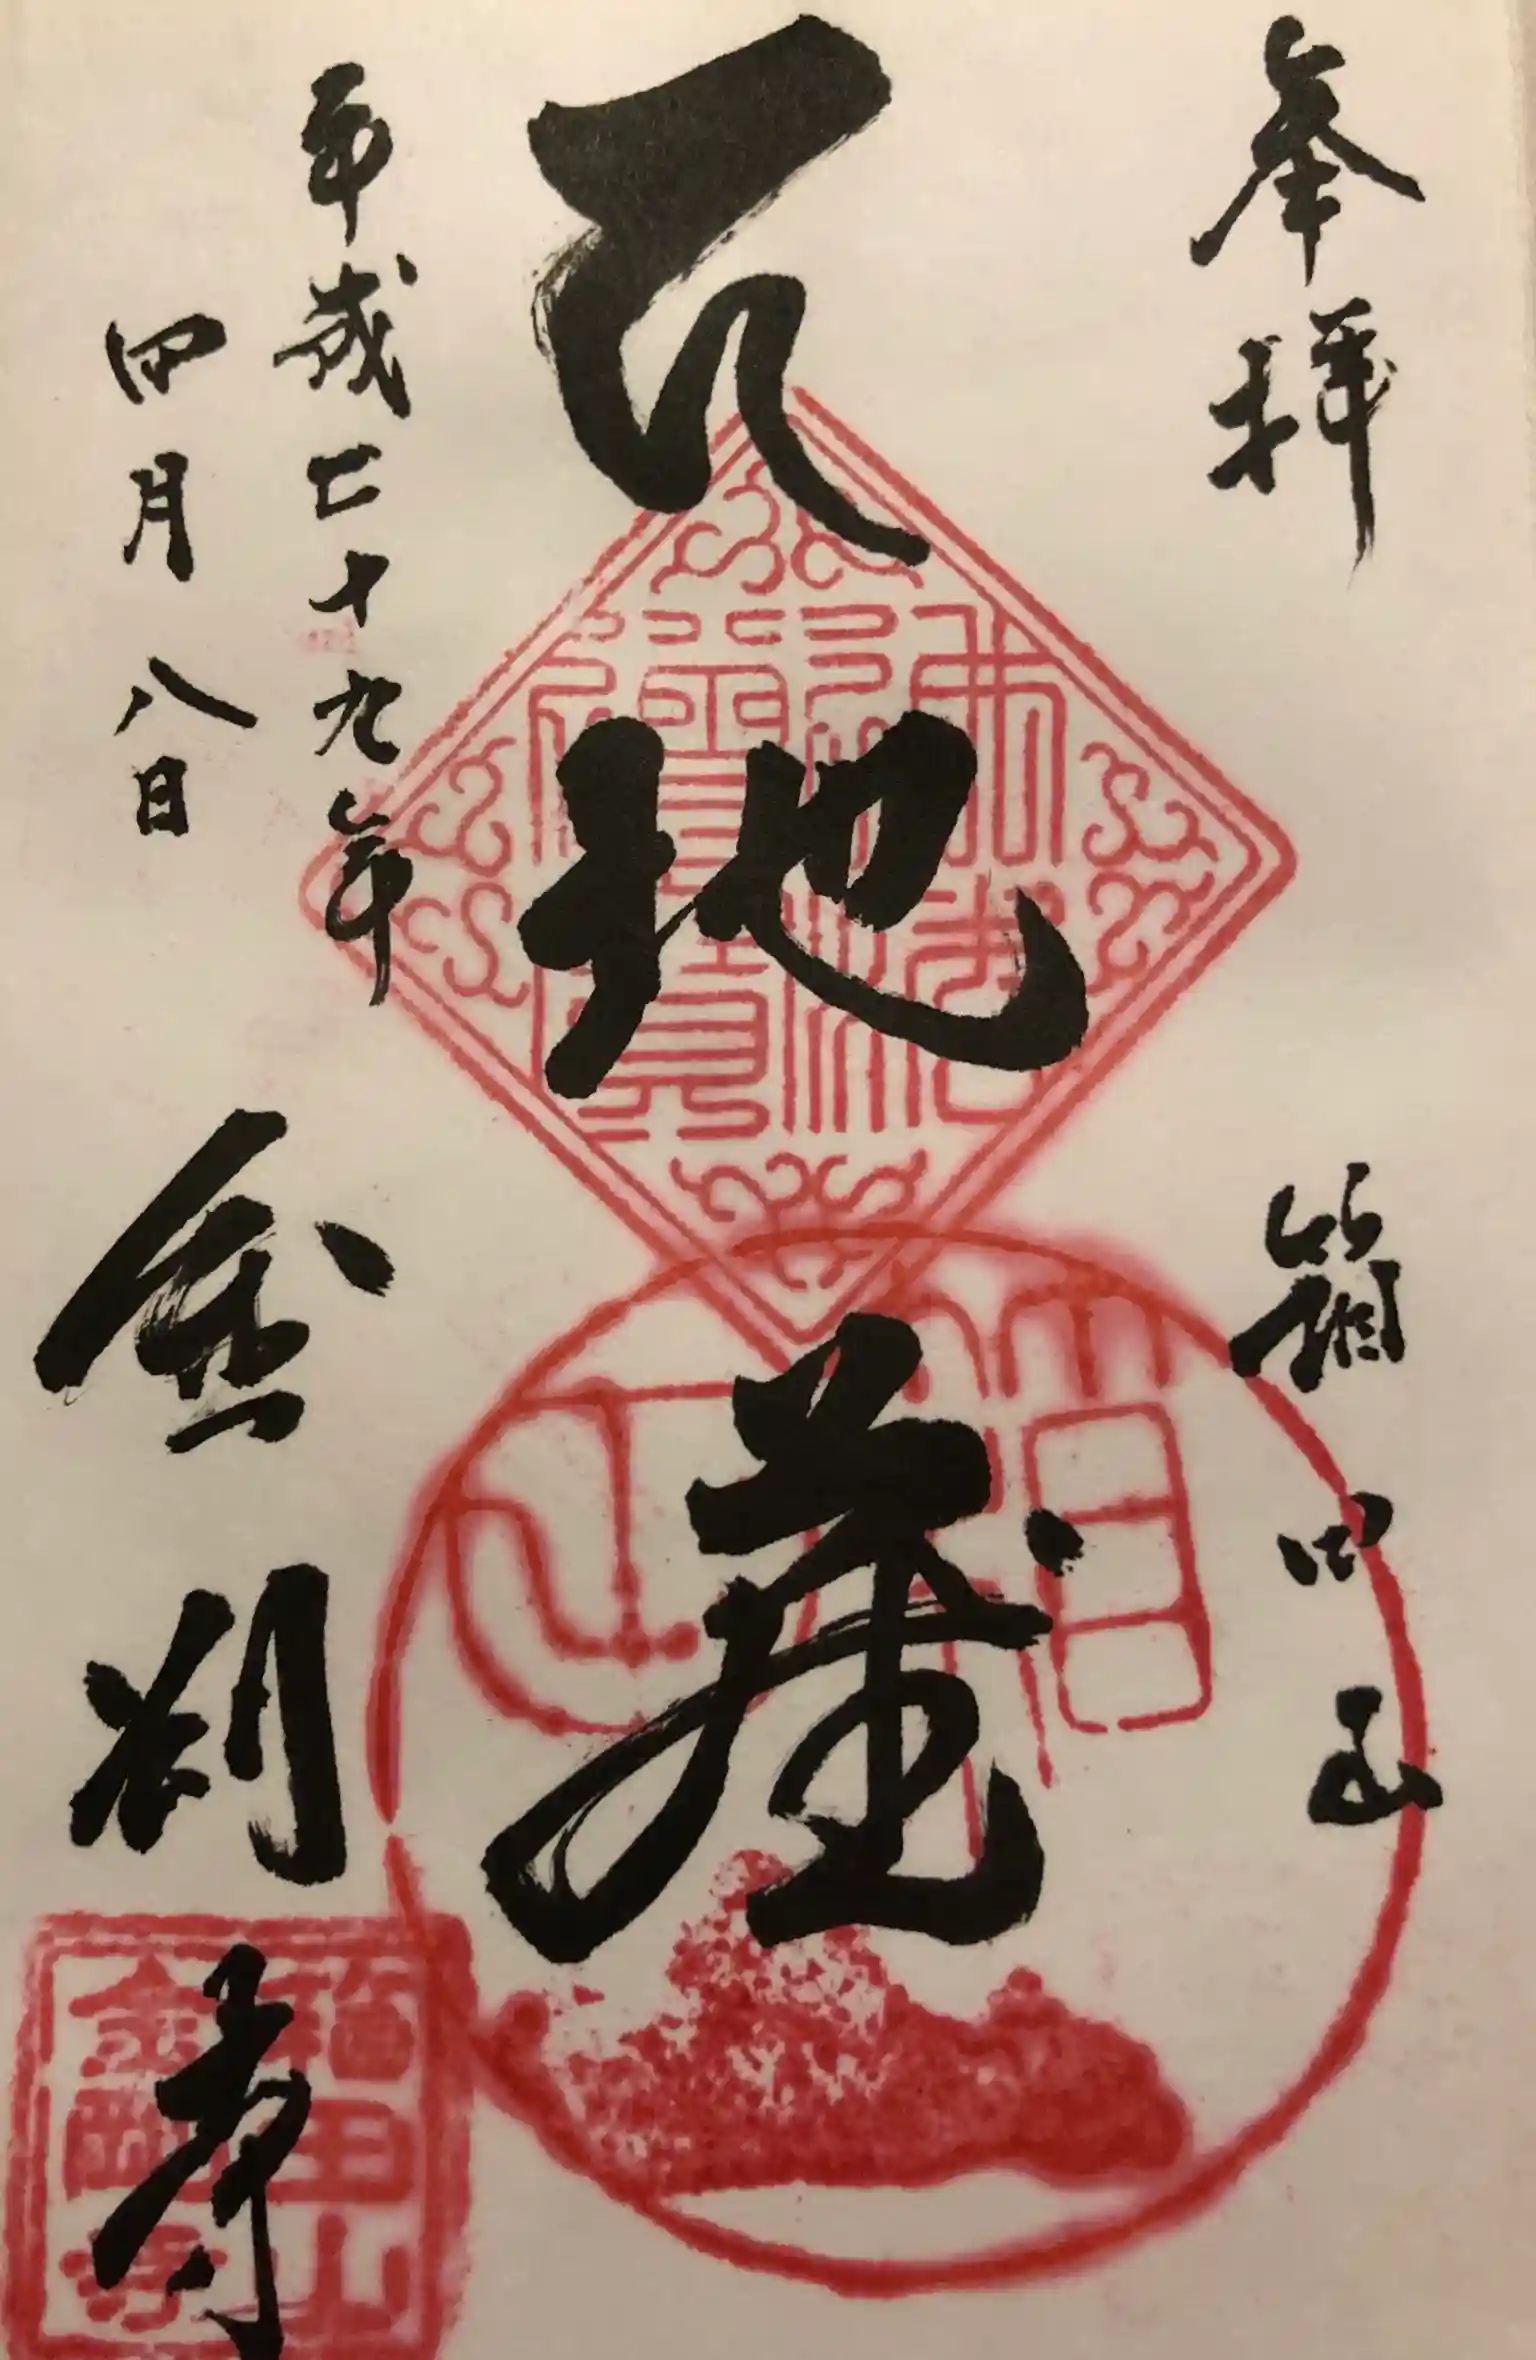 奉拝
箱田山
地蔵
平成二十九年
四月八日
金剛寺
佛法僧寶
箱田山
金剛寺